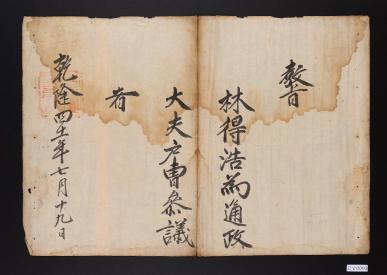 教旨
林得浩爲通政
大夫戶曹參議
者
乾隆四十年七月十九日